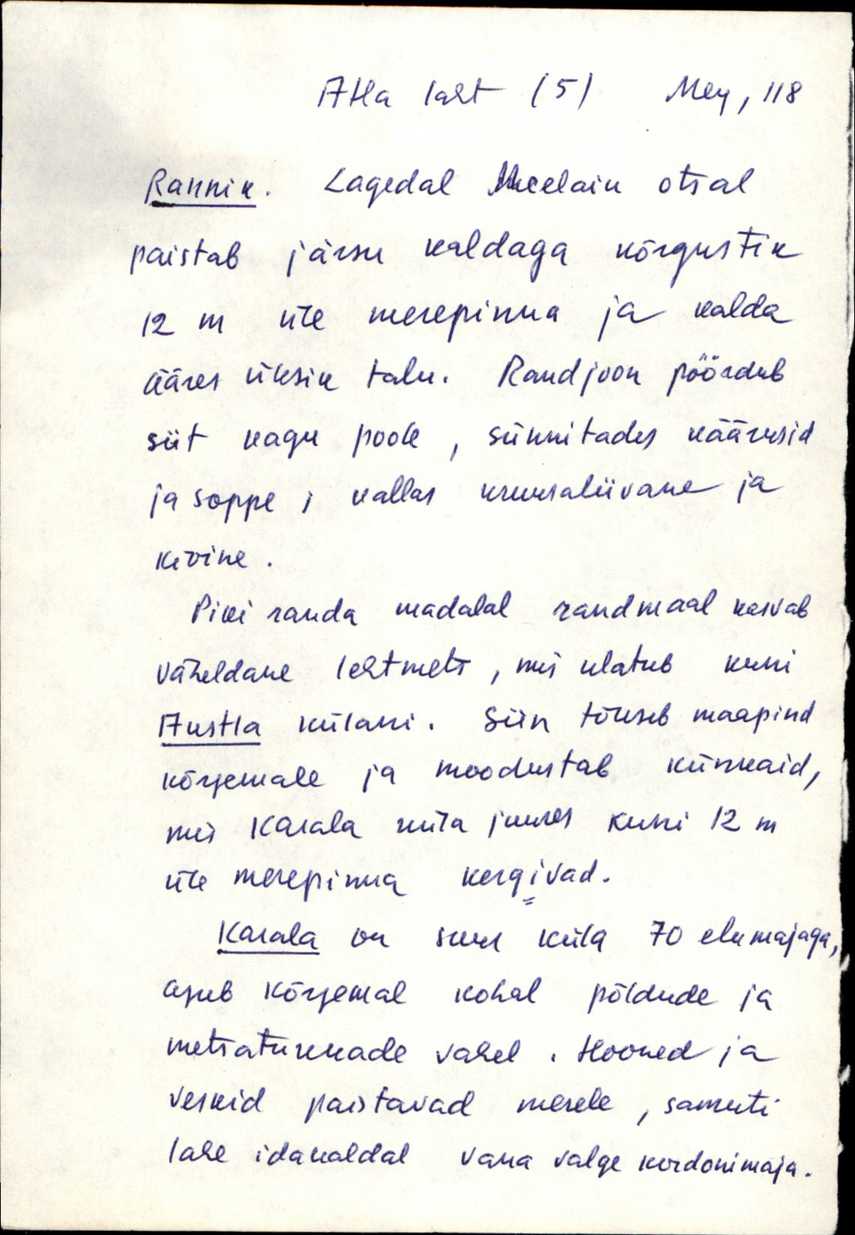 Atla laht (5) Mey, 118
Rannik. Lagedal otsal
paistab järsu kaldaga kõrgustik
12 m üle merepinna ja kalda
ääres üksik talu. Randjoon pöördub
siit kagu poole, sünnitades käärusid
ja soppe; kallas kruusaliivane ja
kivine.
Piki randa madalal randmaal kasvab
väheldane lehtmets, mis ulatub kuni
Austla külani. Siin tõuseb maapind
kõrjemale ja moodustab künkaid,
mis Karala küla juures kuni 12 m
üle merepinna kergivad.
Karala on suur küla 70 elumajaga,
asub kõrjemal kohal põldude ja
metsatukkade vahel. Hooned ja
veskid paistavad merele, samuti
lahe idakaldal vana valge kordonimaja.